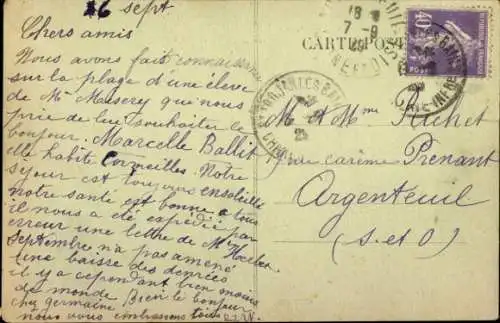 6 sept
Chers amis
Nous avons fait connaissance
sur la plage d'une élève
de Mr Massery qui nous
prie de leur souhaiter le
bonjour. Marcelle Ballit
elle habite Corneilles. Notre
séjour est toujours ensoleillé
notre santé est bonne à tous
il nous a été expédié par
erreur une lettre de Mr
Septembre n'a pas amené
une baisse des denrées
il y a cependant bien moins
de monde. Bien le bonjour
chez germaine
nous vous embrassons tous
CARTE POSTALE
40
M et Mme Richet
rue carème Prenant
Argenteuil
(S-et-O)